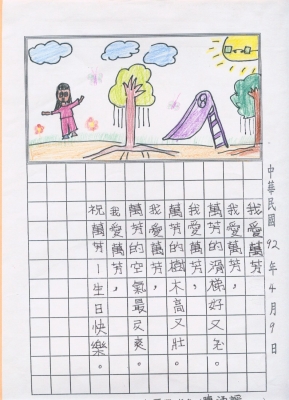 中華民國92年4月9日
我愛萬芳
我愛萬芳，
萬芳的滑梯好又多。
我愛萬芳，
萬芳的樹木高又壯。
我愛萬芳，
萬芳的空氣最靈爽。
祝萬芳！生日快樂。